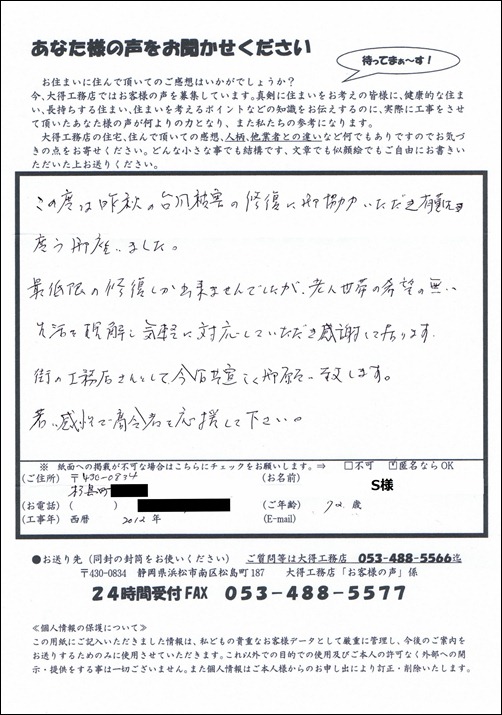 あなた様の声をお聞かせください
待ってまぁ～す！
お住まいに住んで頂いてのご感想はいかがでしょうか？
今、大得工務店ではお客様の声を募集しています。真剣に住まいをお考えの皆様に、健康的な住ま
い、長持ちする住まい、住まいを考えるポイントなどの知識をお伝えするのに、実際に工事をさせ
て頂いたあなた様の声が何よりの力となり、また私たちの参考になります。
大得工務店の住宅、住んで頂いての感想、人柄、他業者との違いなど何でもありですのでお気づ
きの点をお寄せください。どんな小さな事でも結構です、文章でも似顔絵でもご自由にお書きい
ただいた上お送りください。
この度は昨秋の台風被害の修復に御協力いただき有難う
度う御座いました。
最低限の修復しか出来ませんでしたが、老人世帯の希望の無い
生活を理解し気軽に対応していただき感謝して居ります。
街の工務店さんとして今后共宜しく御願い致します。
若い感性で商会を応援して下さい。
※ 紙面への掲載が不可な場合はこちらにチェックをお願いします。⇒ □不可 ☑匿名ならOK
(ご住所) 〒430-0834
(お名前) S様
松島町
(お電話) ( )
(ご年齢) 72 歳
(工事年) 西暦 2012 年
(E-mail)
●お送り先（同封の封筒をお使いください） ご質問等は大得工務店 053-488-5566迄
〒430-0834 静岡県浜松市南区松島町187 大得工務店「お客様の声」係
24時間受付FAX 053-488-5577
≪個人情報の保護について≫
この用紙にご記入いただきました情報は、私どもの貴重なお客様データとして厳重に管理し、今後のご案内を
お送りするためのみに使用させていただきます。これ以外での目的での使用及びご本人の許可なく外部への開
示・提供をする事は一切ございません。また個人情報はご本人様からのお申し出により訂正・削除いたします。